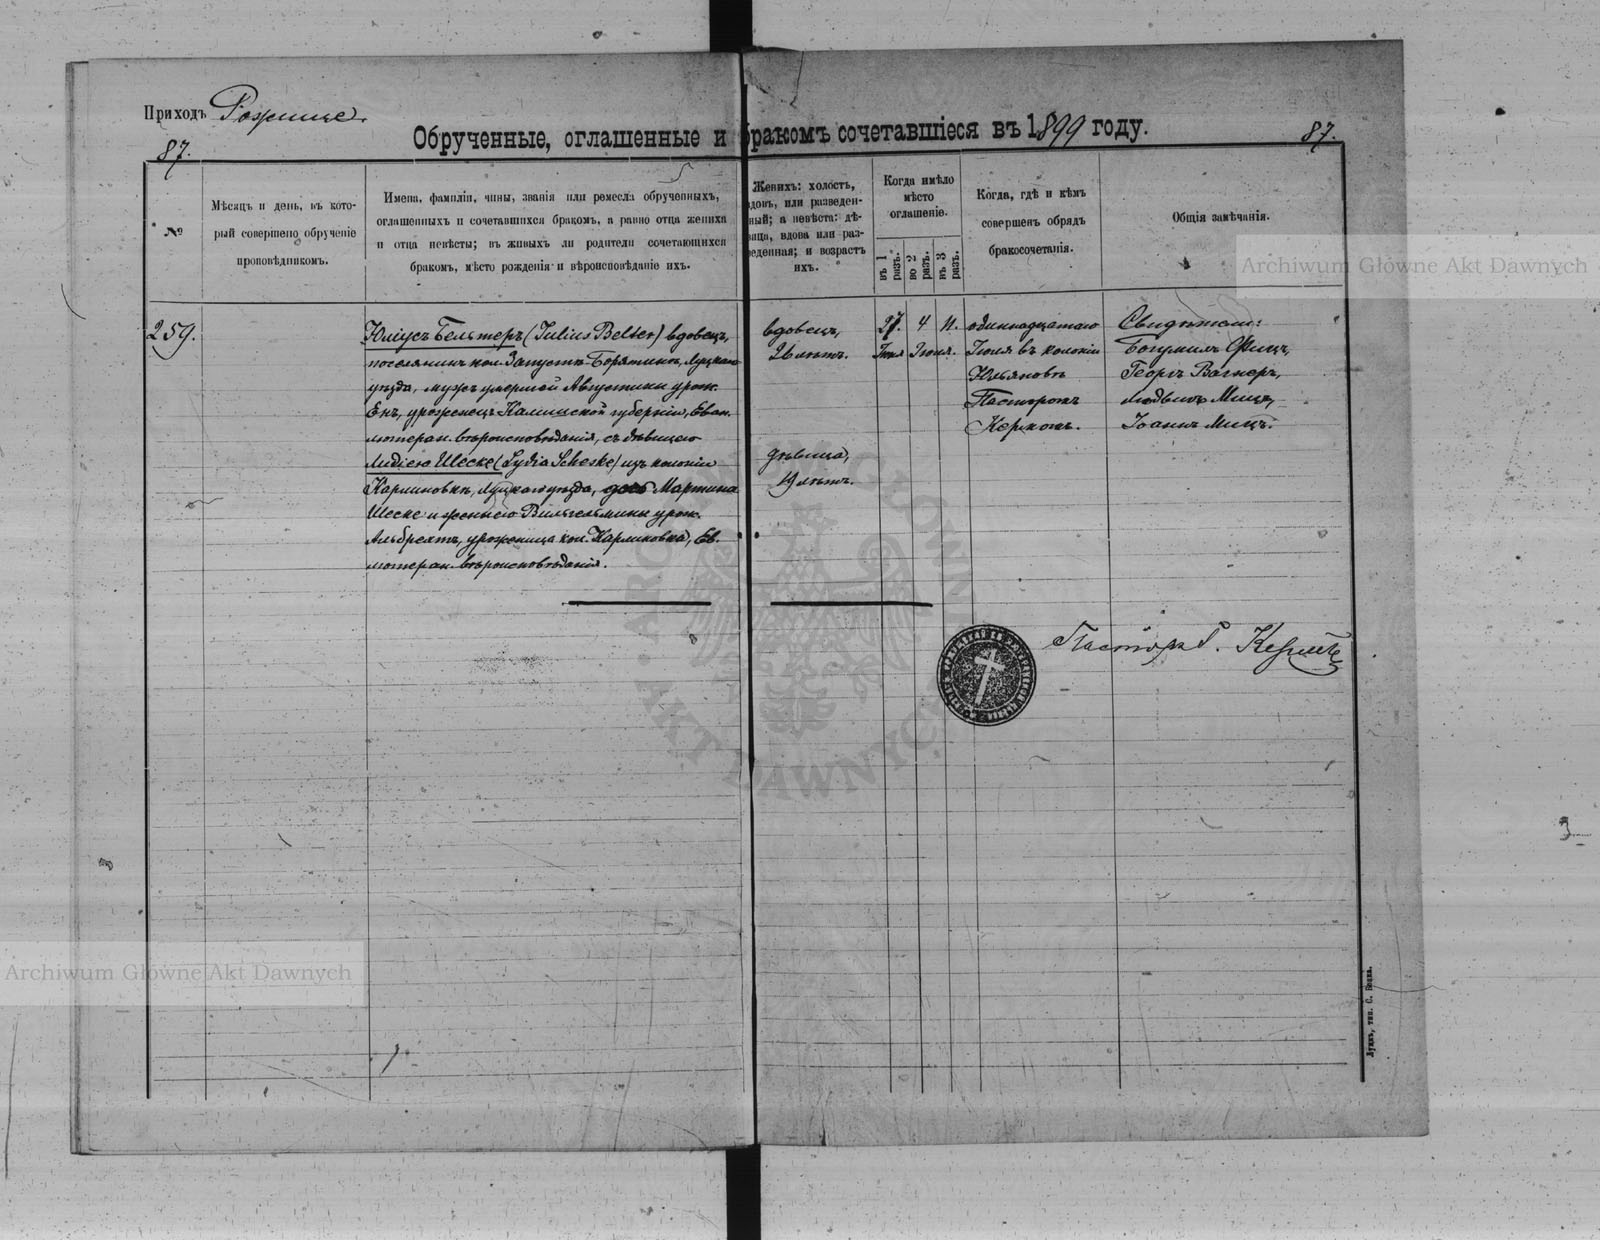 Приходъ Рожище.
87.
Обрученные, оглашенные и бракомъ сочетавшіеся въ 1899 году.
87.
№
Мѣсяцъ и день, въ кото-
рый совершено обрученіе
проповѣдникомъ.
Имена, фамиліи, чины, званія или ремесла обрученныхъ,
оглашенныхъ и сочетавшихся бракомъ, а равно отца жениха
и отца невѣсты; въ живыхъ ли родители сочетающихся
бракомъ, мѣсто рожденія и вѣроисповѣданіе ихъ.
Женихъ: холостъ,
вдовъ, или разведен-
ный; а невѣста: дѣ-
вица, вдова или раз-
веденная; и возрастъ
ихъ.
Когда имѣло
мѣсто
оглашеніе.
въ 1 разъ.
во 2 разъ.
въ 3 разъ.
Когда, гдѣ и кѣмъ
совершенъ обрядъ
бракосочетанія.
Общія замѣчанія.
259.
Юліусъ Бельтеръ (Julius Belter) вдовецъ,
поселянинъ кол. Запустъ-Борятинъ, Луцкаго
уѣзда, мужъ умершей Августины урож.
Енъ, уроженецъ Калишской губерніи, Еван.
лютеран. вѣроисповѣданія, съ дѣвицею
Лидіею Шеске (Lydia Scheske) изъ колоніи
Карлиновка, Луцкаго уѣзда, Мартина
Шеске и жены его Вильгельмины урож.
Альбрехтъ, уроженица кол. Карлиновка, Ев.
лютеран. вѣроисповѣданія.
вдовецъ,
26 лѣтъ.
дѣвица,
19 лѣтъ.
27.
4
11.
Іюля.
одиннадцатаго
Іюля въ колоніи
Юльяновъ
Пасторомъ
Кермомъ.
Свидѣтели:
Богумилъ Фицъ,
Георгъ Вагнеръ,
Людвигъ Мицъ,
Іоаннъ Мицъ.
Пасторъ Г. Кермъ
Луцкъ, тип. С. Бодкв.
Archiwum Główne Akt Dawnych
Archiwum Główne Akt Dawnych